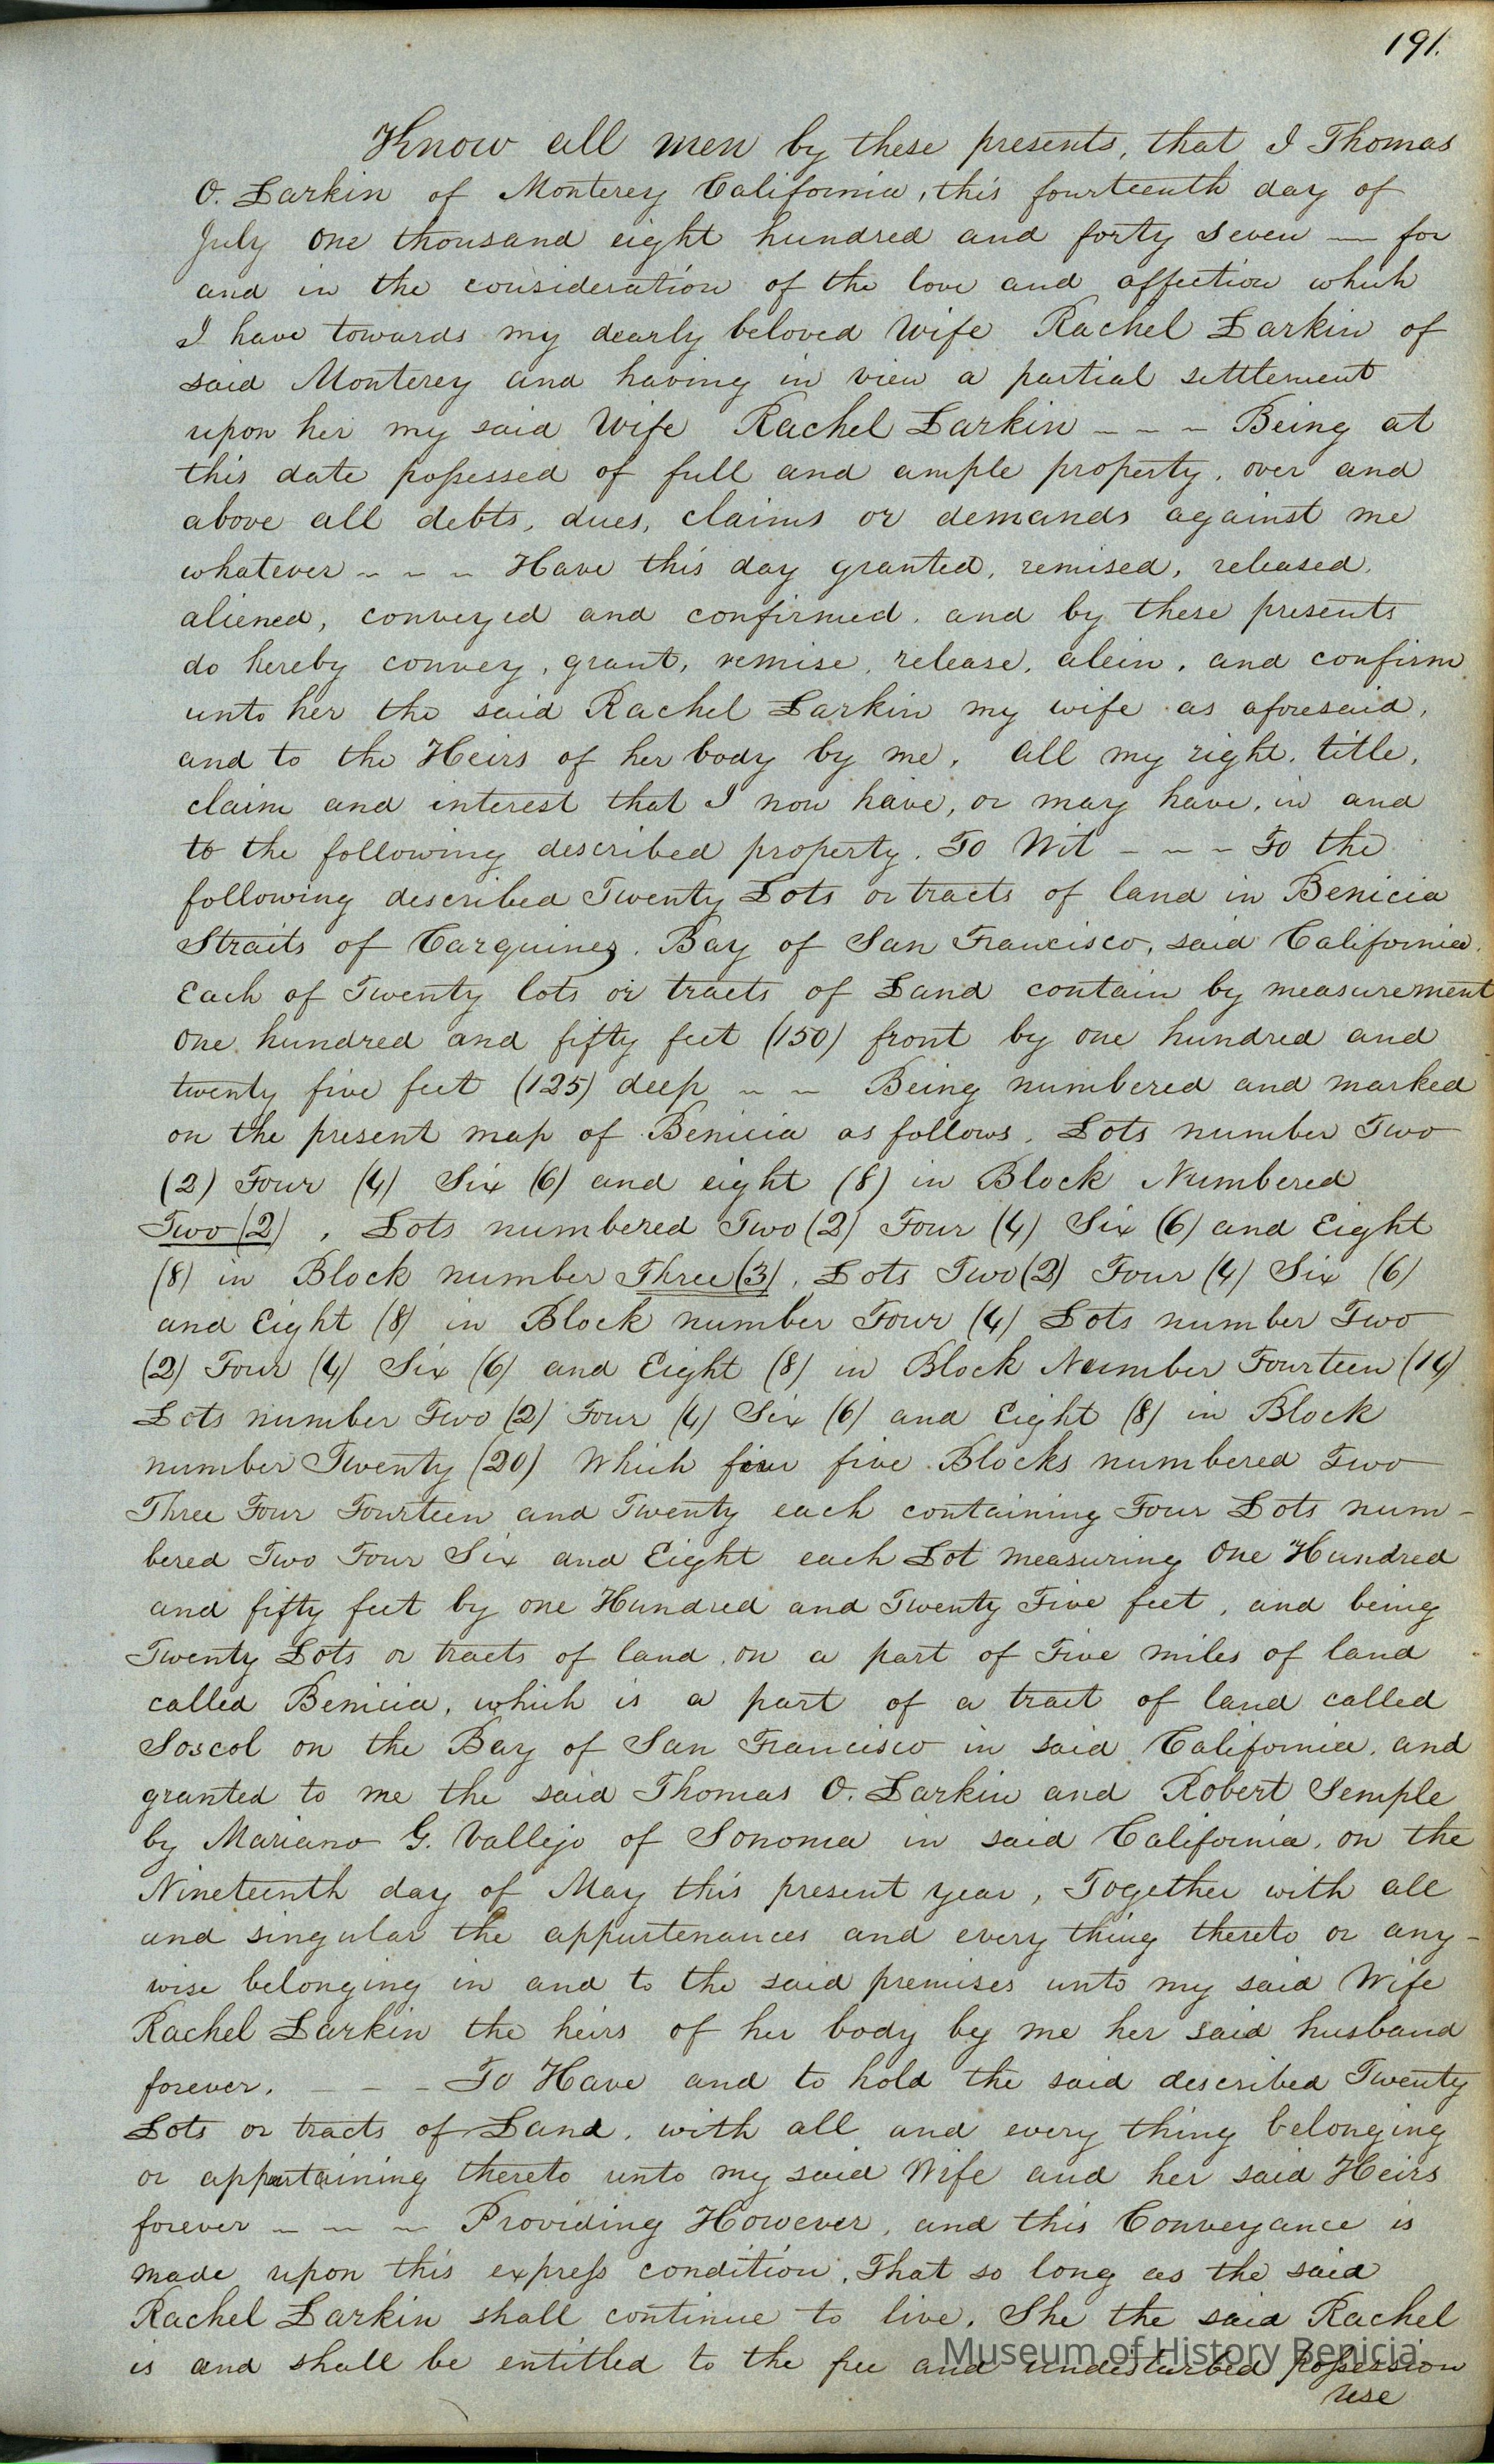 191.
Know all men by these presents, that I Thomas
O. Larkin of Monterey California, this fourteenth day of
July One thousand eight hundred and forty seven — for
and in the consideration of the love and affection which
I have towards my dearly beloved Wife Rachel Larkin of
said Monterey and having in view a partial settlement
upon her my said Wife Rachel Larkin - - - Being at
this date possessed of full and ample property, over and
above all debts, dues, claims or demands against me
whatever - - - Have this day granted, remised, released,
aliened, conveyed and confirmed, and by these presents
do hereby convey, grant, remise, release, alein, and confirm
unto her the said Rachel Larkin my wife as aforesaid,
and to the Heirs of her body by me, all my right, title,
claim and interest that I now have, or may have, in and
to the following described property. To Wit - - - To the
following described Twenty Lots or tracts of land in Benicia
Straits of Carquinez, Bay of San Francisco, said California.
Each of Twenty lots or tracts of Land contain by measurement
One hundred and fifty feet (150) front by one hundred and
twenty five feet (125) deep - - Being numbered and marked
on the present map of Benicia as follows. Lots number Two
(2) Four (4) Six (6) and eight (8) in Block Numbered
Two (2), Lots numbered Two (2) Four (4) Six (6) and Eight
(8) in Block number Three (3), Lots Two (2) Four (4) Six (6)
and Eight (8) in Block number Four (4) Lots number Two
(2) Four (4) Six (6) and Eight (8) in Block Number Fourteen (14)
Lots number Two (2) Four (4) Six (6) and Eight (8) in Block
number Twenty (20) Which five Blocks numbered Two
Three Four Fourteen and Twenty each containing Four Lots num-
bered Two Four Six and Eight each Lot measuring One Hundred
and fifty feet by one Hundred and Twenty Five feet, and being
Twenty Lots or tracts of land, on a part of Five miles of land
called Benicia, which is a part of a tract of land called
Soscol on the Bay of San Francisco in said California, and
granted to me the said Thomas O. Larkin and Robert Semple
by Mariano G. Vallejo of Sonoma in said California, on the
Nineteenth day of May this present year, Together with all
and singular the appurtenances and every thing thereto or any-
wise belonging in and to the said premises unto my said Wife
Rachel Larkin the heirs of her body by me her said husband
forever. - - - To Have and to hold the said described Twenty
Lots or tracts of Land, with all and every thing belonging
or appertaining thereto unto my said Wife and her said Heirs
forever - - - Providing However, and this Conveyance is
made upon this express condition, That so long as the said
Rachel Larkin shall continue to live, She the said Rachel
is and shall be entitled to the free and undisturbed possession
use
Museum of History Benicia